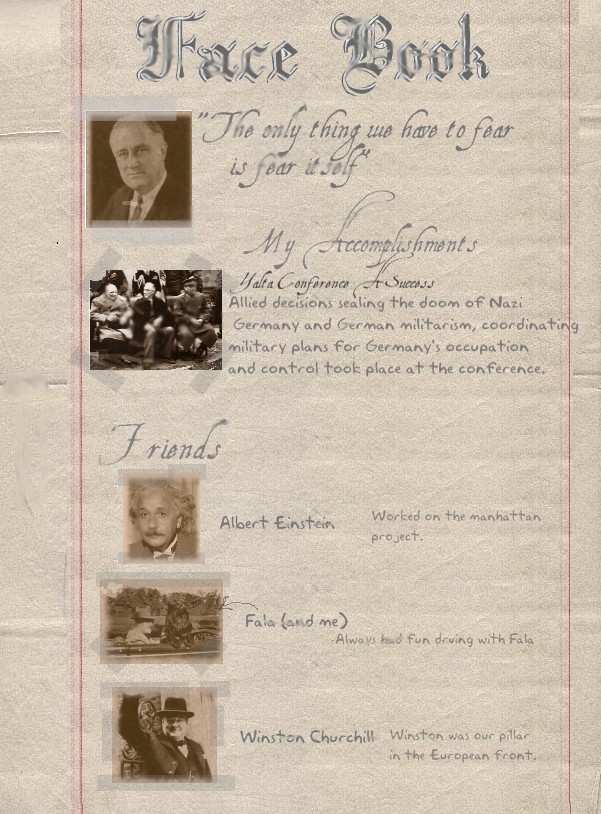 Face Book
"The only thing we have to fear
is fear itself"
My Accomplishments
Yalta Conference A Success
Allied decisions sealing the doom of Nazi
Germany and German militarism, coordinating
military plans for Germany's occupation
and control took place at the conference.
Friends
Albert Einstein
Worked on the manhattan
project.
Fala (and me)
Always had fun driving with Fala
Winston Churchill
Winston was our pillar
in the European front.